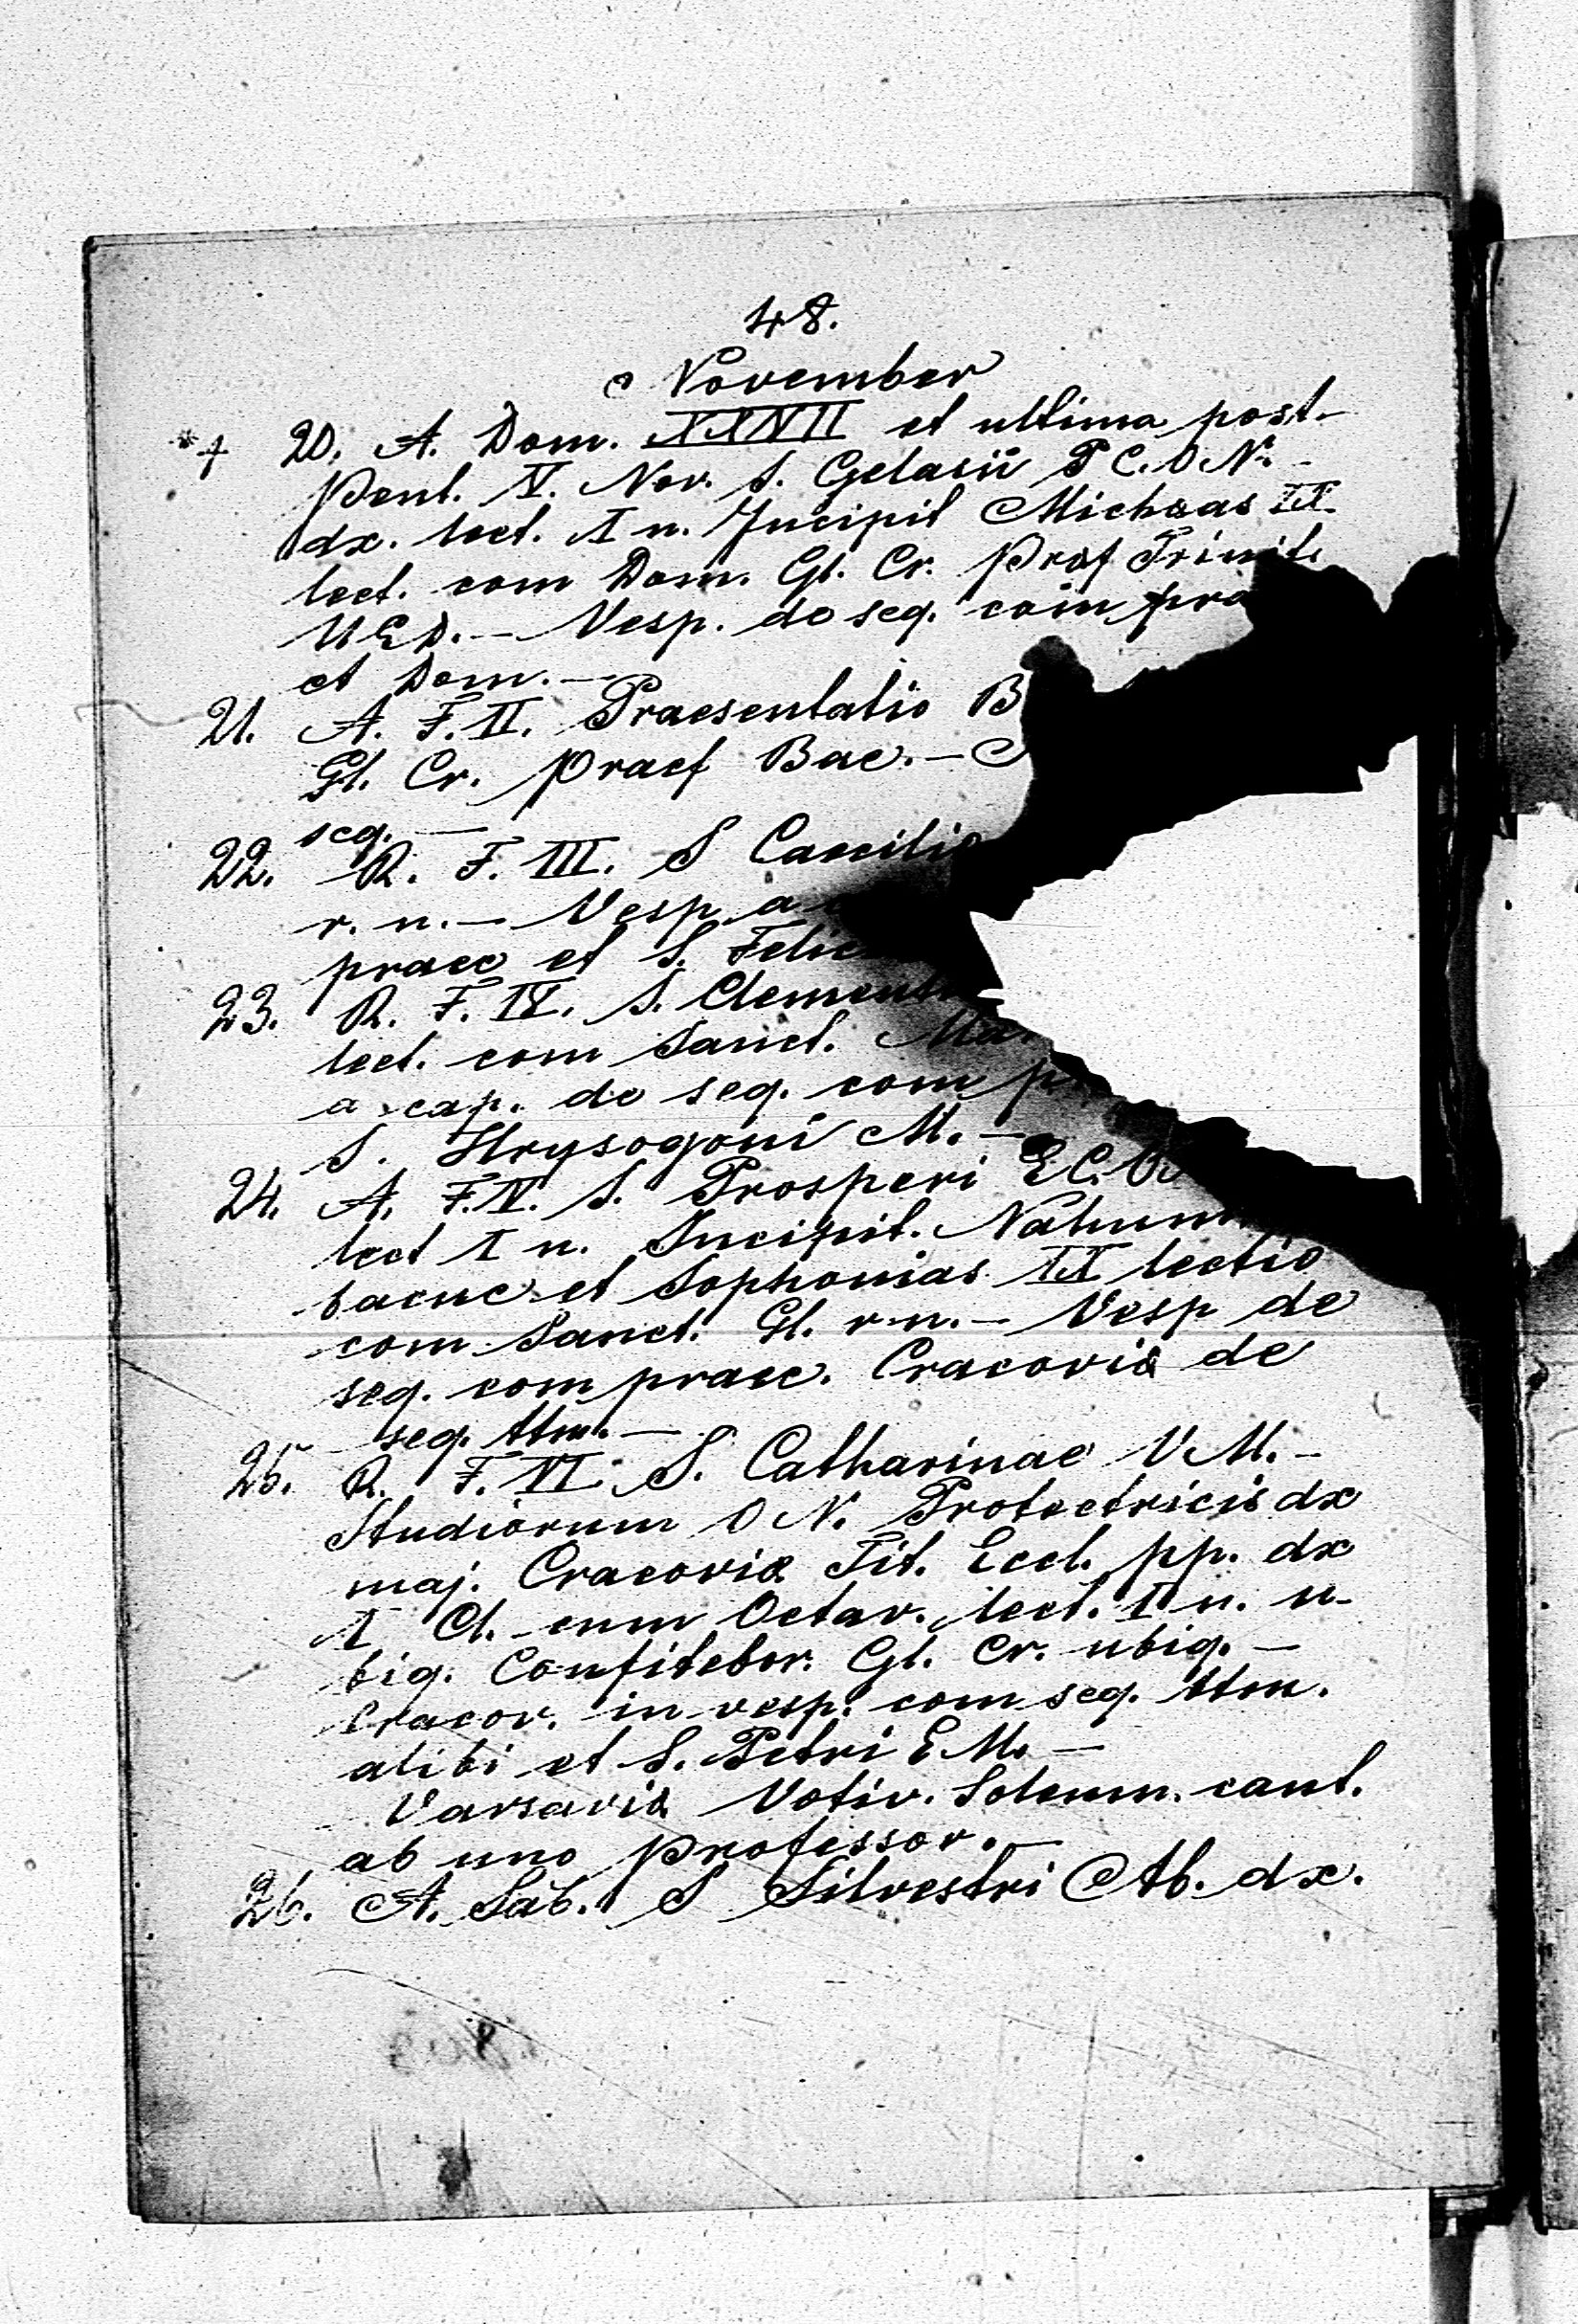 48.
November
*† 20. A. Dom. XXVII et ultima post
Pent. V. Nov. S. Gelasii P C. O N. -
dx. lect. I n. Incipit Michaeas IX
lect. com Dom. Gl. Cr. Praf Trinit.
U E D. - Vesp. de seq. com pra
et Dom. -
21. A. F. II. Praesentatio B
Gl. Cr. Praef Bae. -
seq. -
22. R. F. III. S Caecilia
r. n. - Vesp a
praec et S. Felic
23. R. F. IV. S. Clement
lect. com Sanct. Ma
a cap. de seq. com p
S. Hrysogoni M. -
24. A. F. V. S. Prosperi E C. O
lect I n. Incipit. Nahum
bacuc et Sophonias IX lectio
com Sanct. Gl. r n. - Vesp de
seq. com praec. Cracovia de
seq. ttm. -
25. R. F. VI. S. Catharinae V M. -
Studiorum O N. Protectricis dx
maj. Cracovia Tit. Eccl. pp. dx
I Cl. cum Octav. lect. I n. u-
biq. Confitebor. Gl. Cr. ubiq. -
Cracov. in vesp. com seq. ttm.
alibi et S. Petri E M. -
Varsavia Votiv. Solemn. cant.
ab uno Professor. -
26. A. Sab. S Silvestri Ab. dx.